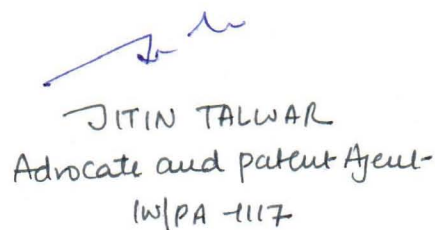 JITIN TALWAR
Advocate and patent Agent
IN/PA-1117